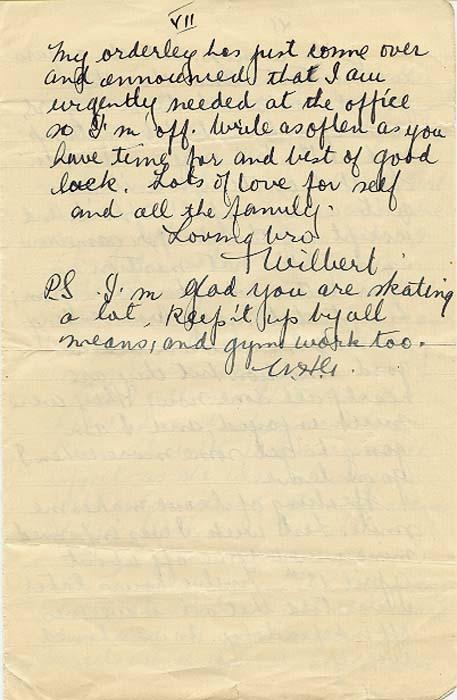 VII
My orderley has just come over
and announced that I am
urgently needed at the office
so I'm off. Write as often as you
have time for and best of good
luck. Lots of love for self
and all the family.
Loving bro
Wilbert
PS I'm glad you are skating
a lot, keep it up by all
means, and gym work too.
W.H.G.